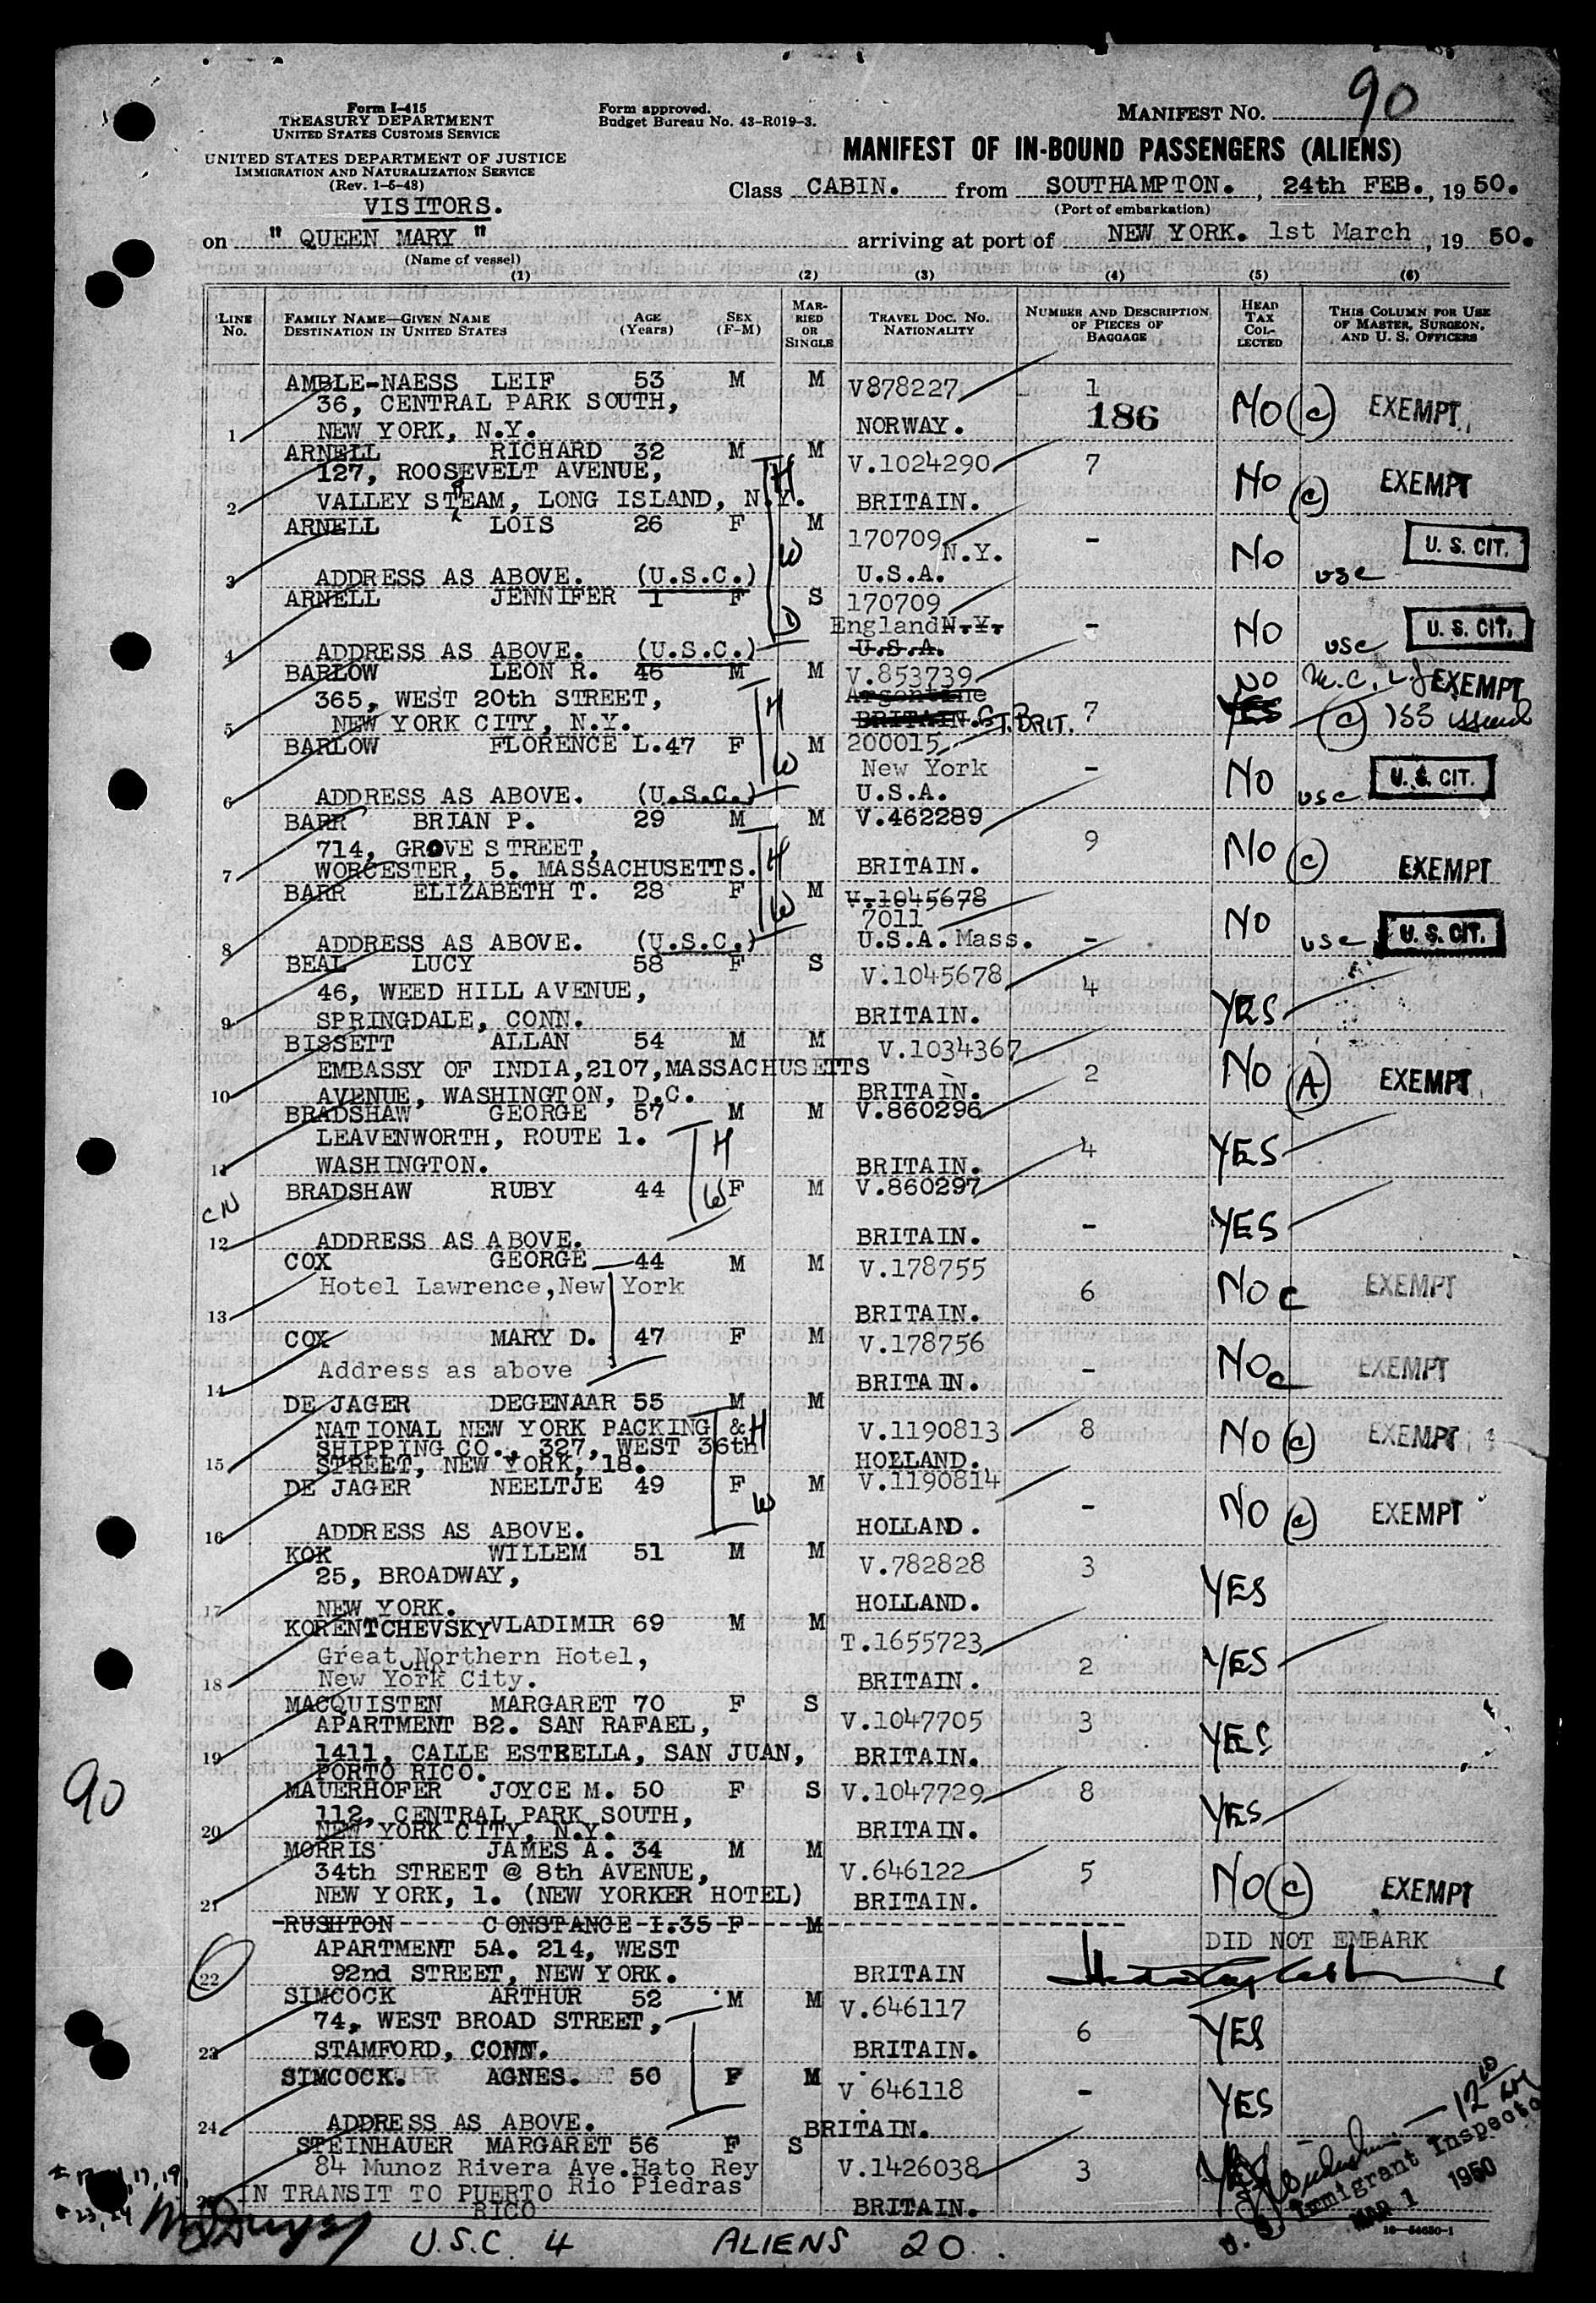 Form I-415
TREASURY DEPARTMENT
UNITED STATES CUSTOMS SERVICE
UNITED STATES DEPARTMENT OF JUSTICE
IMMIGRATION AND NATURALIZATION SERVICE
(Rev. 1-6-48)
VISITORS.
Form approved.
Budget Bureau No. 43-R019-3.
MANIFEST NO. 90
MANIFEST OF IN-BOUND PASSENGERS (ALIENS)
Class CABIN. from SOUTHAMPTON. , 24th FEB. , 19 50.
(Port of embarkation)
on " QUEEN MARY " arriving at port of NEW YORK. 1st March , 19 50.
(Name of vessel)
(1) (2) (3) (4) (5) (6)
LINE No. FAMILY NAME—GIVEN NAME DESTINATION IN UNITED STATES AGE (Years) SEX (F-M) MARRIED OR SINGLE TRAVEL DOC. NO. NATIONALITY NUMBER AND DESCRIPTION OF PIECES OF BAGGAGE HEAD TAX COLLECTED THIS COLUMN FOR USE OF MASTER, SURGEON, AND U. S. OFFICERS
AMBLE-NAESS LEIF 53 M M V878227 1
36, CENTRAL PARK SOUTH, 186 NO (c) EXEMPT
1 NEW YORK, N.Y. NORWAY.
ARNELL RICHARD 32 M M V.1024290 7
127, ROOSEVELT AVENUE, H NO (c) EXEMPT
2 VALLEY STEAM, LONG ISLAND, N.Y. BRITAIN.
R
ARNELL LOIS 26 F M 170709 N.Y. -
W NO usc U. S. CIT.
3 ADDRESS AS ABOVE. (U.S.C.) U.S.A.
ARNELL JENNIFER 1 F S 170709
D England N.Y. - NO usc U. S. CIT.
4 ADDRESS AS ABOVE. (U.S.C.) U.S.A.
BARLOW LEON R. 46 M M V.853739 NO EXEMPT
365, WEST 20th STREET, H Argentine
5 NEW YORK CITY, N.Y. BRITAIN. GT.BRIT. 7 YES (c) 155 issued
BARLOW FLORENCE L. 47 F M 200015
W New York - NO usc U. S. CIT.
6 ADDRESS AS ABOVE. (U.S.C.) U.S.A.
BARR BRIAN P. 29 M M V.462289
714, GROVE STREET, H 9 NO (c) EXEMPT
7 WORCESTER, 5. MASSACHUSETTS. BRITAIN.
BARR ELIZABETH T. 28 F M V.1045678
W 7011 NO usc U. S. CIT.
8 ADDRESS AS ABOVE. (U.S.C.) U.S.A. Mass. -
BEAL LUCY 58 F S V.1045678 4
46, WEED HILL AVENUE, YES
9 SPRINGDALE, CONN. BRITAIN.
BISSETT ALLAN 54 M M V.1034367
EMBASSY OF INDIA,2107,MASSACHUSETTS 2 NO (A) EXEMPT
10 AVENUE, WASHINGTON, D.C. BRITAIN.
BRADSHAW GEORGE 57 M M V.860296
LEAVENWORTH, ROUTE 1. H 4 YES
11 WASHINGTON. BRITAIN.
CN BRADSHAW RUBY 44 W F M V.860297
- YES
12 ADDRESS AS ABOVE. BRITAIN.
COX GEORGE 44 M M V.178755
Hotel Lawrence,New York 6 NO c EXEMPT
13 BRITAIN.
COX MARY D. 47 F M V.178756
Address as above - NO c EXEMPT
14 BRITAIN.
DE JAGER DEGENAAR 55 M M
NATIONAL NEW YORK PACKING & H V.1190813 8 NO (c) EXEMPT
SHIPPING CO., 327, WEST 36th
15 STREET, NEW YORK, 18. HOLLAND.
DE JAGER NEELTJE 49 F M V.1190814
W - NO (c) EXEMPT
16 ADDRESS AS ABOVE. HOLLAND.
KOK WILLEM 51 M M V.782828 3
25, BROADWAY, YES
17 NEW YORK. HOLLAND.
KORENTCHEVSKY VLADIMIR 69 M M T.1655723
Great Northern Hotel, 2 YES
18 New York City. BRITAIN.
MACQUISTEN MARGARET 70 F S V.1047705 3
APARTMENT B2. SAN RAFAEL, YES
19 1411, CALLE ESTRELLA, SAN JUAN, BRITAIN.
PORTO RICO.
MAUERHOFER JOYCE M. 50 F S V.1047729 8
112, CENTRAL PARK SOUTH, YES
20 NEW YORK CITY, N.Y. BRITAIN.
MORRIS JAMES A. 34 M M V.646122 5
34th STREET @ 8th AVENUE, NO (c) EXEMPT
21 NEW YORK, 1. (NEW YORKER HOTEL) BRITAIN.
RUSHTON CONSTANCE I. 35 F M
APARTMENT 5A. 214, WEST DID NOT EMBARK
22 92nd STREET, NEW YORK. BRITAIN
SIMCOCK ARTHUR 52 M M V.646117
74, WEST BROAD STREET, 6 YES
23 STAMFORD, CONN. BRITAIN.
SIMCOCK. AGNES. 50 F M V 646118 - YES
24 ADDRESS AS ABOVE. BRITAIN.
STEINHAUER MARGARET 56 F S V.1426038 3
84 Munoz Rivera Ave.Hato Rey
Rio Piedras
IN TRANSIT TO PUERTO RICO BRITAIN.
90
23, 24
U. S. Immigrant Inspector
MAR 1 1950
16—54650-1
U.S.C. 4 ALIENS 20.